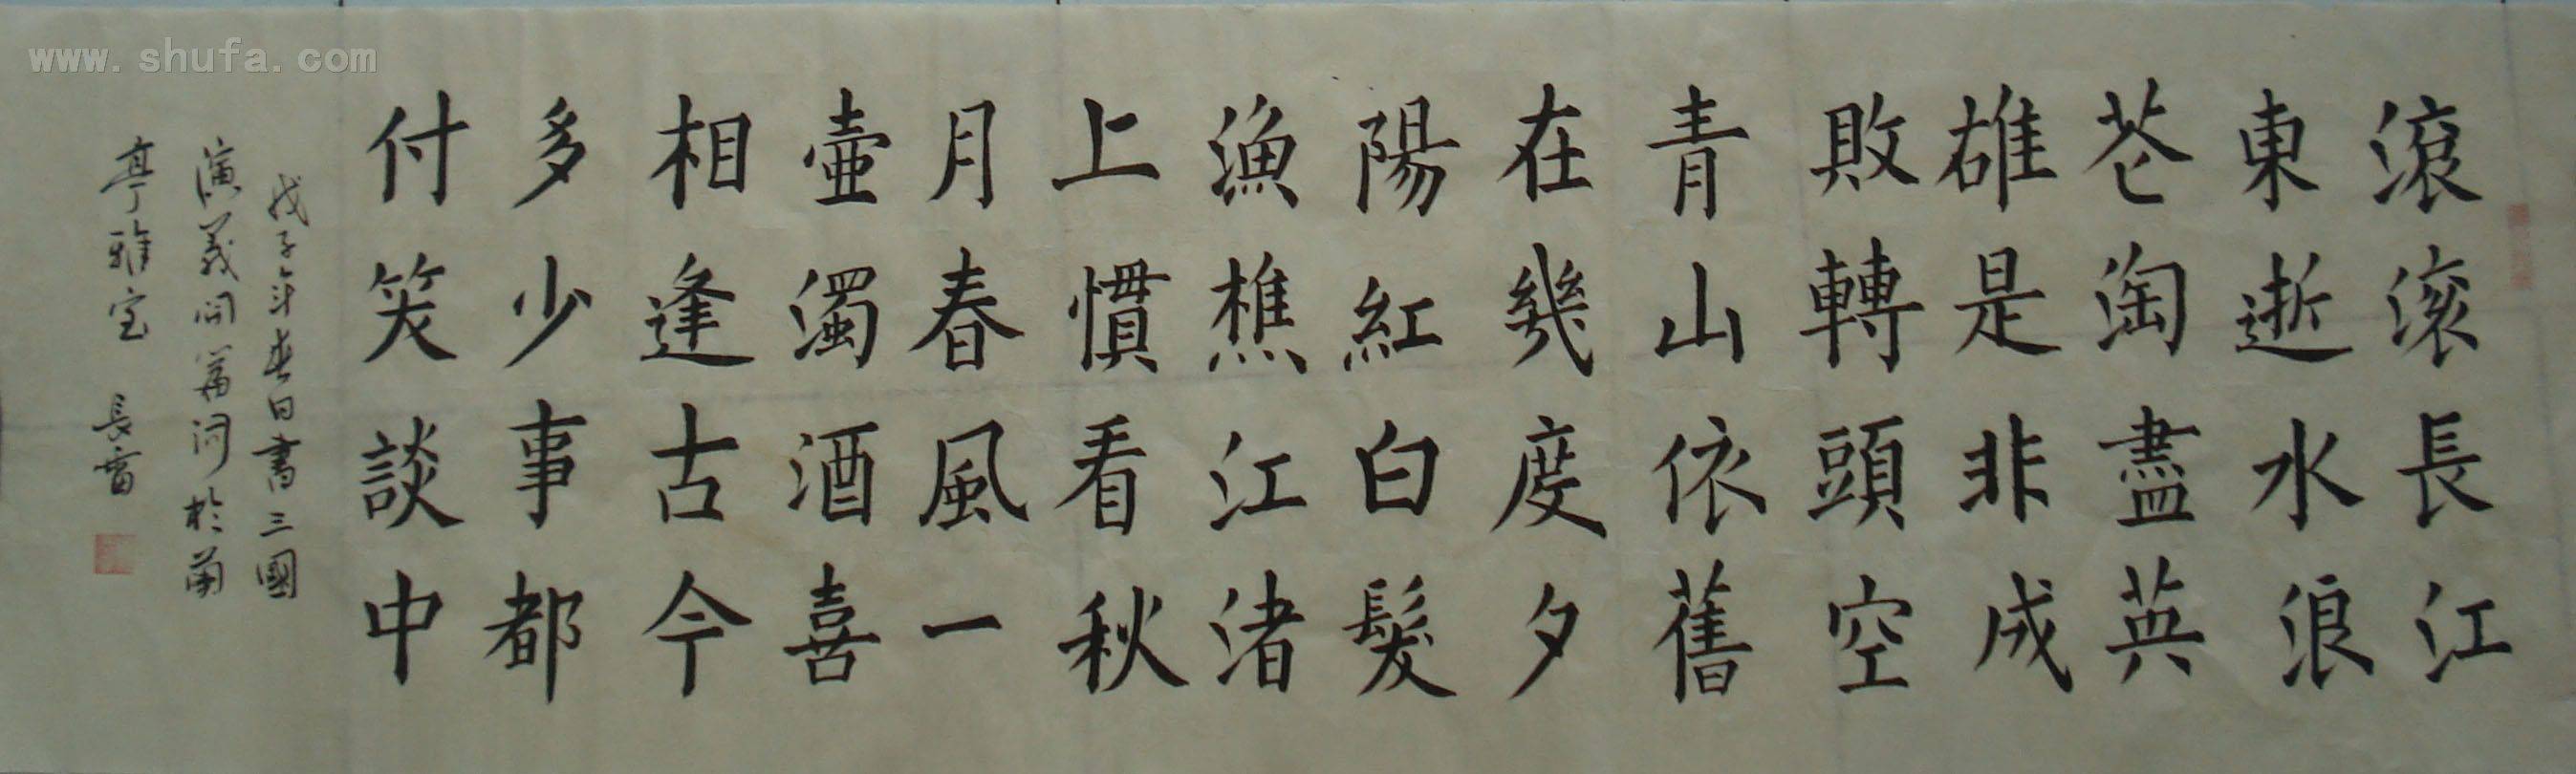 www.shufa.com
滾滚長江
東逝水浪
花淘盡英
雄是非成
敗轉頭空
青山依舊
在幾度夕
陽紅白髮
漁樵江渚
上慣看秋
月春風一
壺濁酒喜
相逢古今
多少事都
付笑談中
戊子年春日書三國
演義開篇词於蘭
亭雅室 長